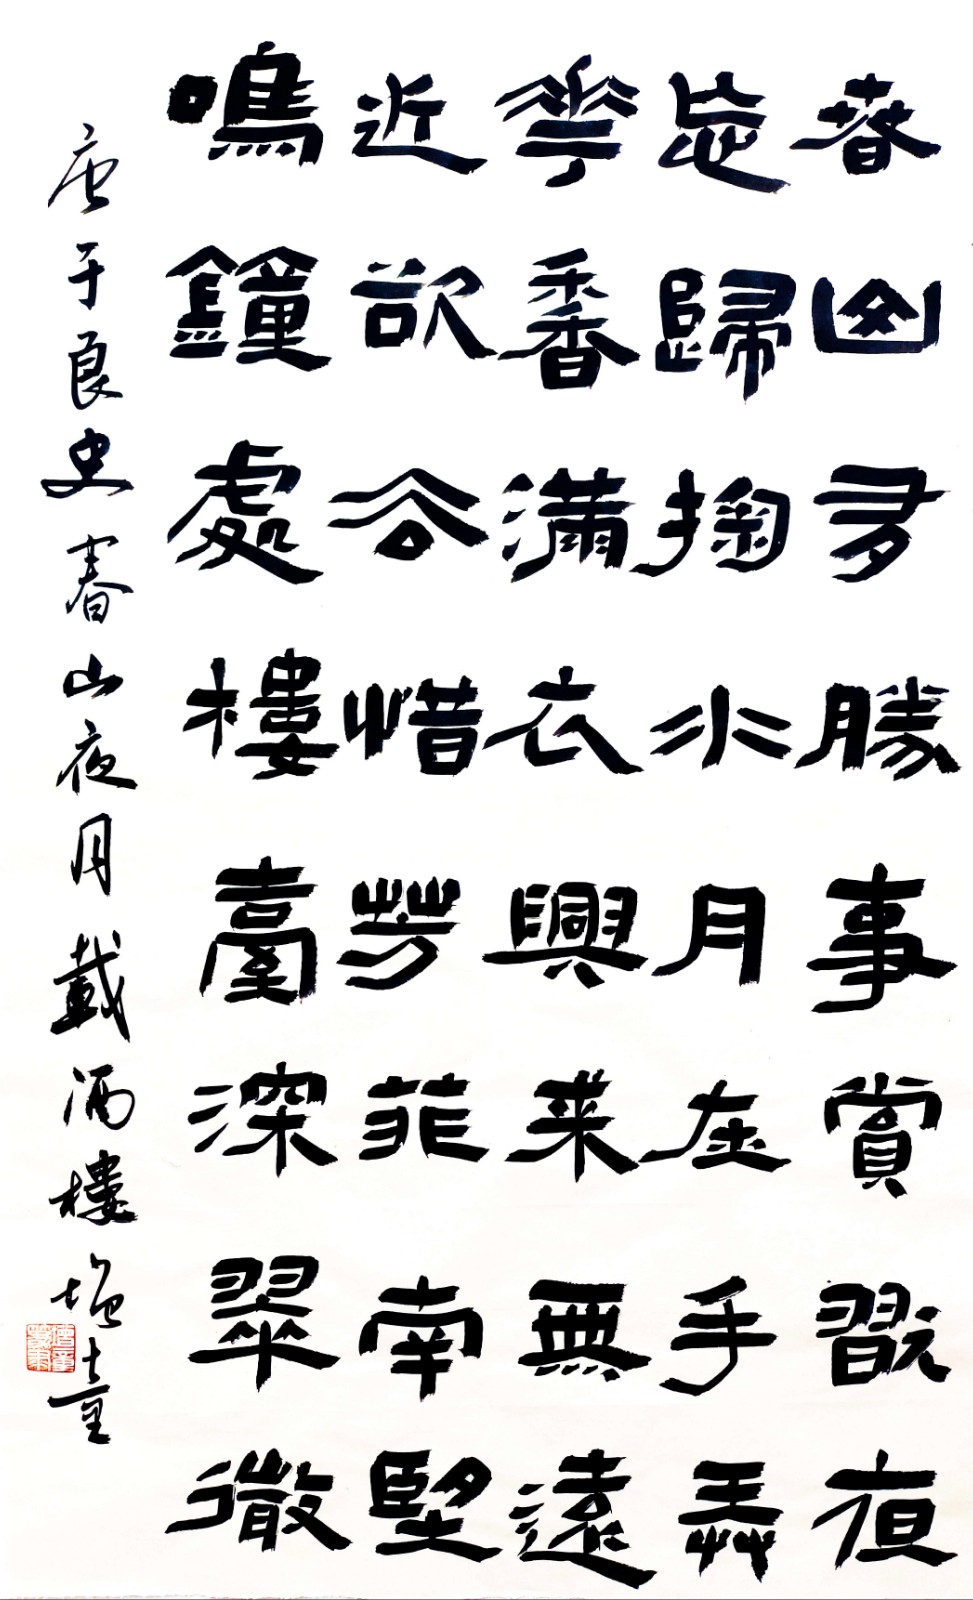 春山多勝事賞翫夜
忘歸掬水月在手弄
華香滿衣興来無遠
近欲去惜芳菲南望
鳴鐘處樓臺深翠微
唐于良史春山夜月載酒樓童